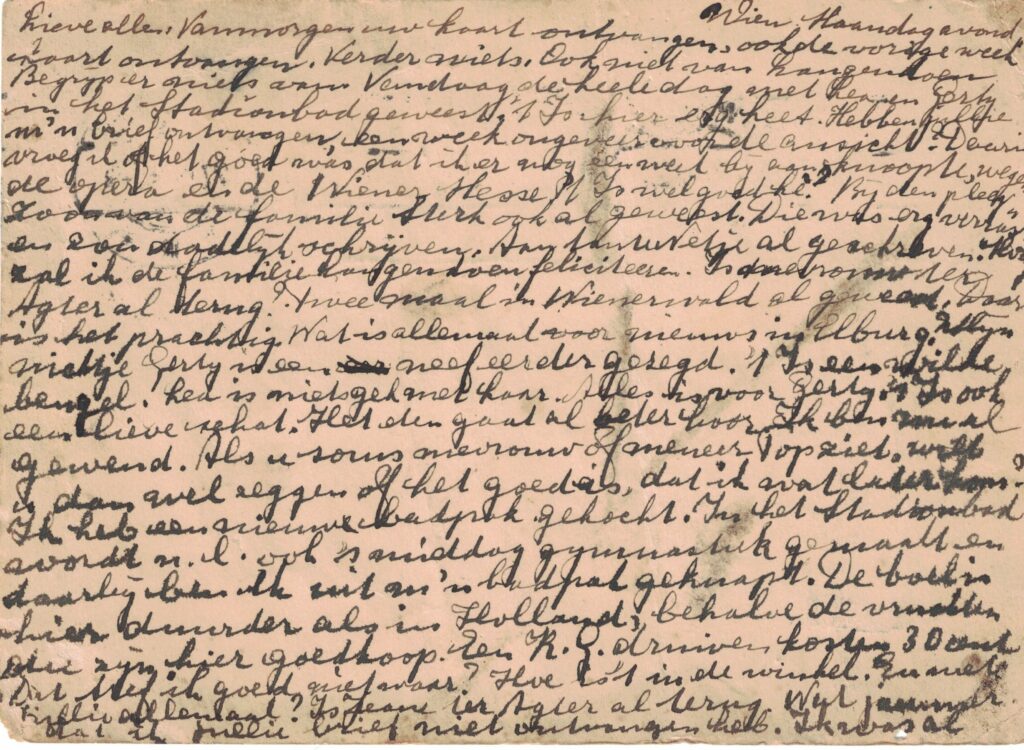 Lieve allen. Vanmorgen uw kaart ontvangen, ook de vorige week
Wien Maandagavond
kaart ontvangen. Verder niets. Ook niet van
Begrijp er niets van. Vandaag de heele dag met Lea en Gerty
in het Stadionbad geweest. 't Is hier erg heet. Hebben jullie
m'n brief ontvangen, een week ongeveer voor de ansicht? Daarin
vroeg ik of het goed was, dat ik er nog een week bij aanknoopte, wegens
de opera en de Wiener Messe. 't Is wel goed hè? Bij den pleeg
zoon van de familie Sterk ook al geweest. Die was erg
en zou dadelijk schrijven. Aan tante al geschreven.
zal ik de familie feliciteeren. Is mevrouw ter
Agter al terug? Twee maal in Wienerwald al geweest. Daar
is het prachtig. Wat is allemaal voor nieuws in Elburg? Mijn
nichtje Gerty is een neef eerder gezegd. 't Is een wilde
bengel. Lea is niets gek met haar. Alles is voor Gerty. 't Is ook
een lieve schat. Het den gaat al beter hoor. Ik ben nu al
gewend. Als u soms mevrouw of meneer Top ziet, wilt
u dan wel zeggen of het goed is, dat ik wat later kom?
Ik heb een nieuwe badpak gekocht. In het Stadionbad
wordt n.l. ook 's middag gymnastiek gemaakt en
daarbij ben ik uit m'n badpak geknapt. De boel is
hier duurder als in Holland, behalve de vruchten
die zijn hier goedkoop. Een K.G. druiven kosten 30 cent.
Dat tref ik goed, niet waar? Hoe is 't in de winkel. En met
jullie allemaal? Is Jeane ter Agter al terug. Wat jammer
dat ik jullie brief niet ontvangen heb. Ik was al